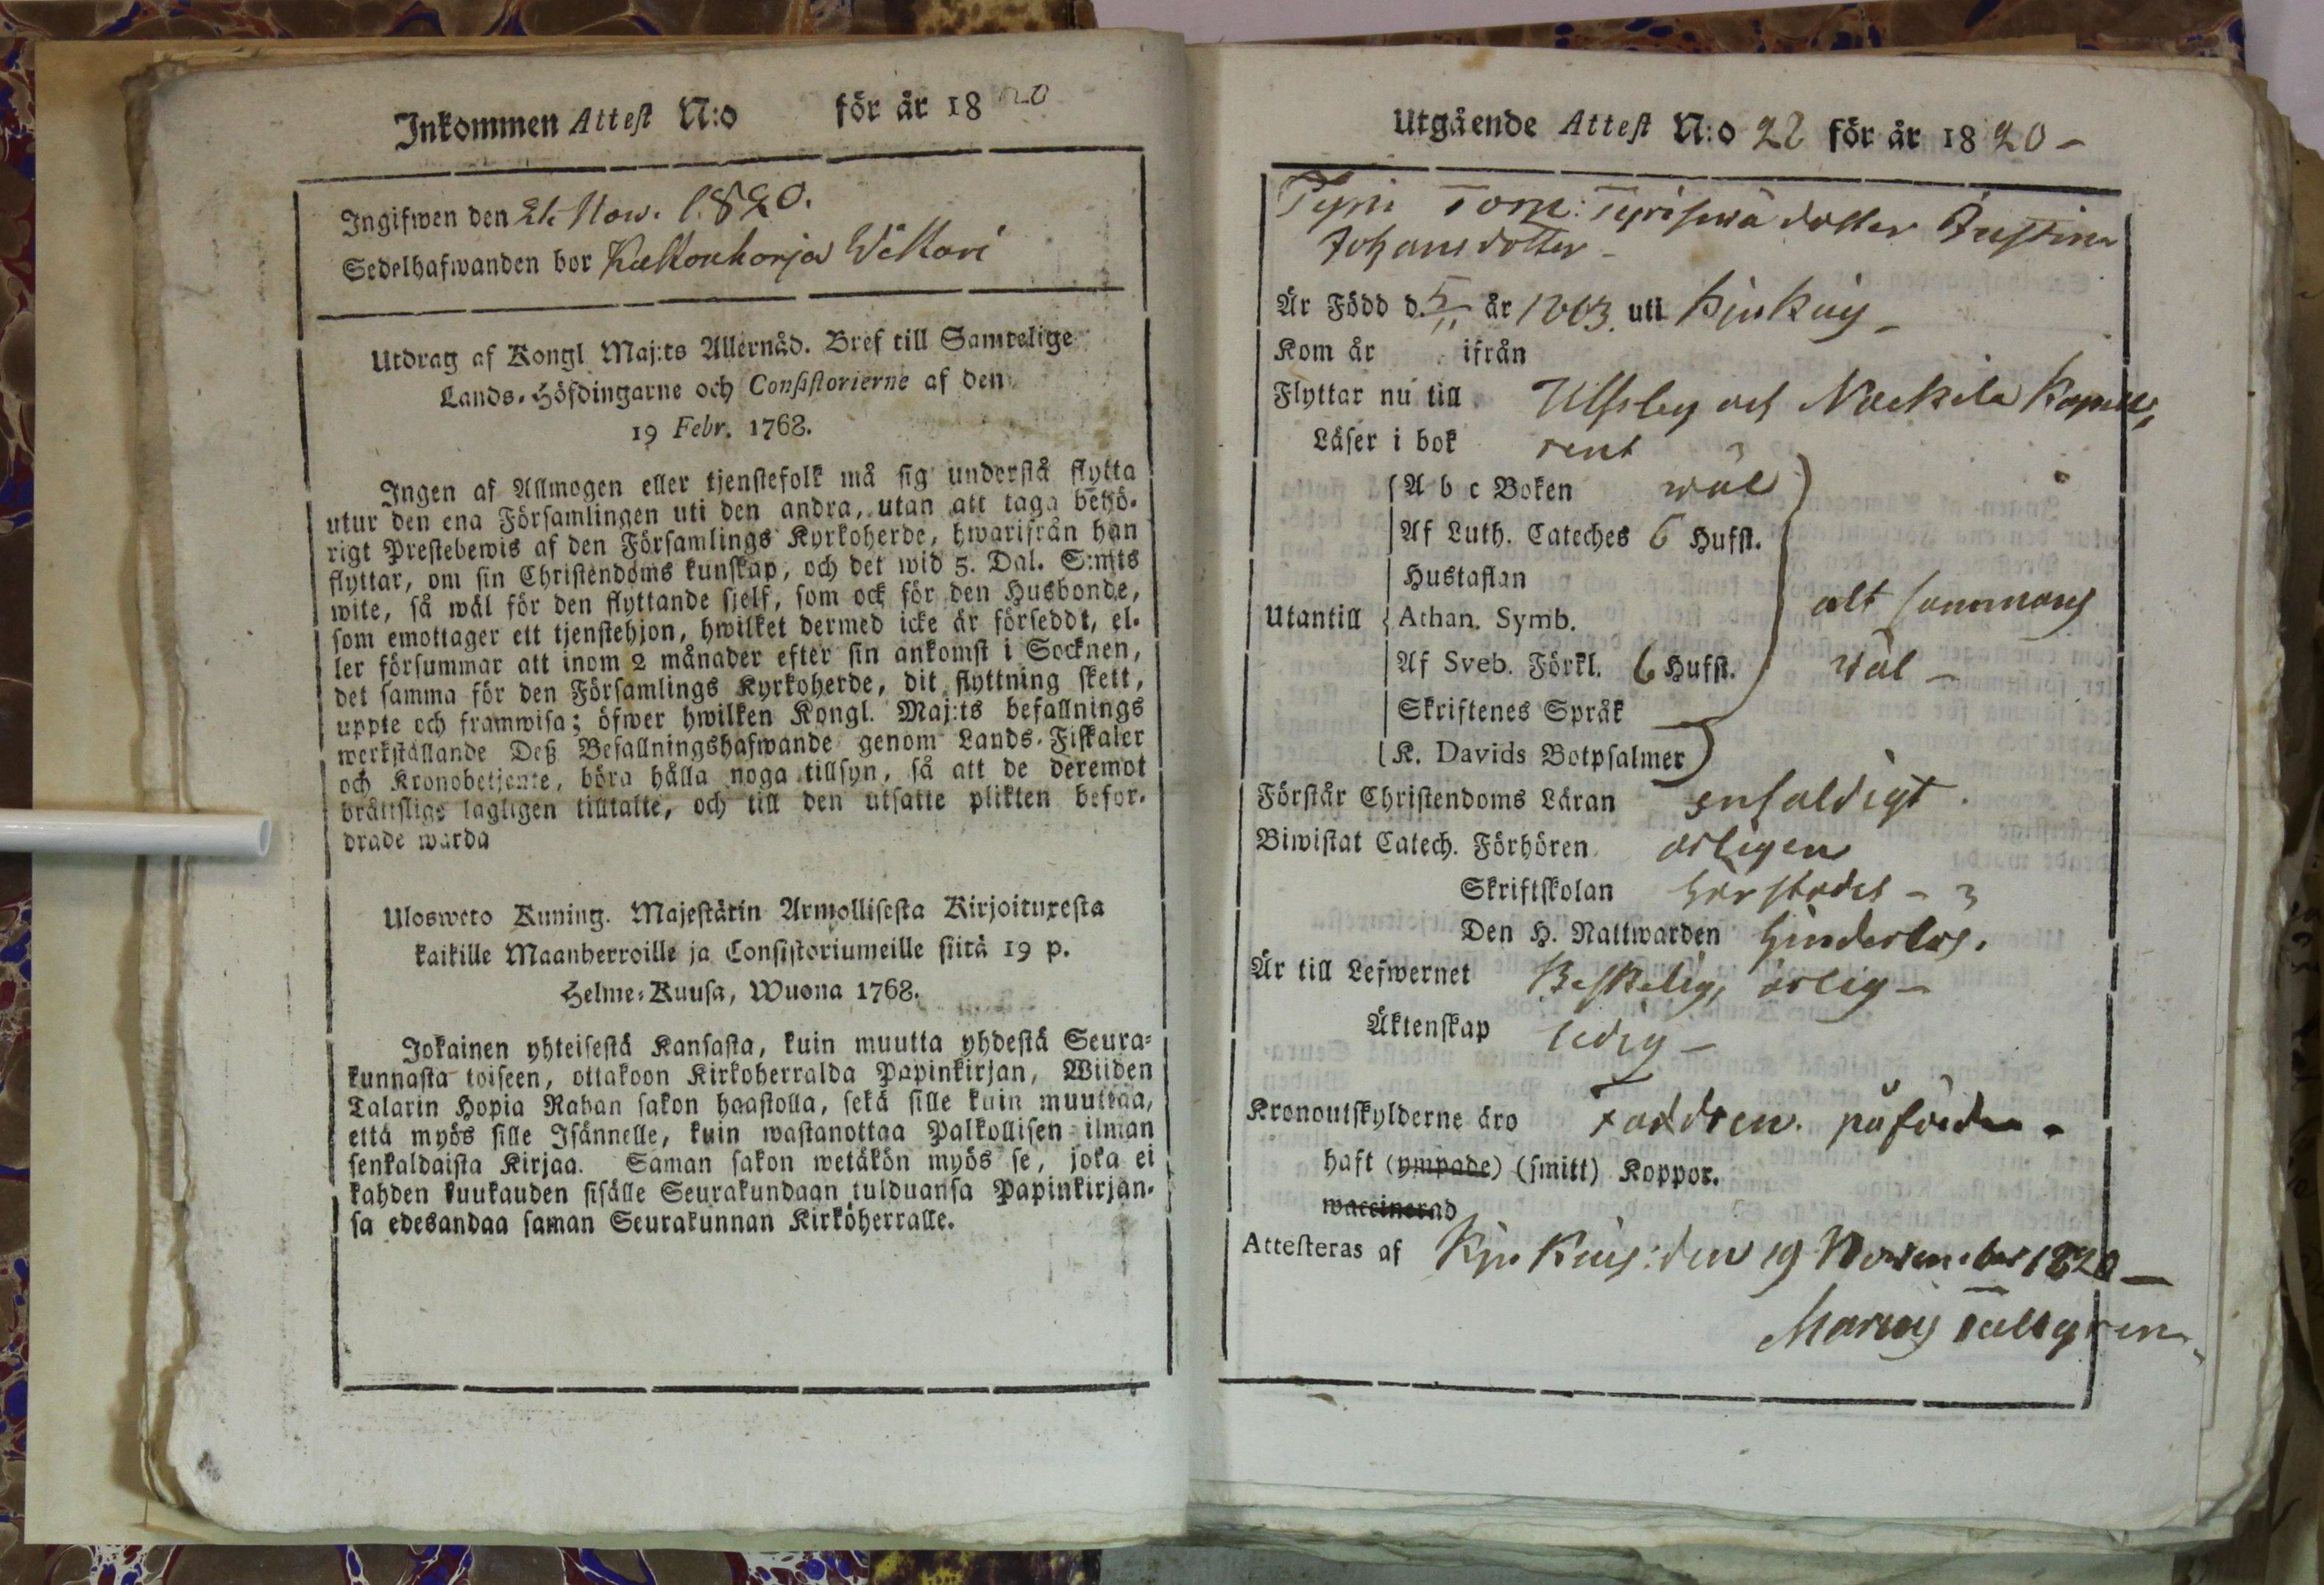 Inkommen Attest N:o för år 1820
Ingifwen den 21 Nov. 1820.
Sedelhafwanden bor
Utdrag af Kongl. Maj:ts Allernåd. Bref till Samtelige
Lands-Höfdingarne och Consistorierne af den
19 Febr. 1768.
Ingen af Allmogen eller tjenstefolk må sig understå flytta
utur den ena Församlingen uti den andra, utan att taga behö-
rigt Prestebewis af den Församlings Kyrkoherde, hwarifrån han
flyttar, om sin Christendoms kunskap, och det wid 5. Dal. S:mts
wite, så wäl för den flyttande sjelf, som ock för den Husbonde,
som emottager ett tjenstehjon, hwilket dermed icke är förseddt, el-
ler försummar att inom 2 månader efter sin ankomst i Socknen,
det samma för den Församlings Kyrkoherde, dit flyttning skett,
uppte och framwisa; öfwer hwilken Kongl. Maj:ts befallnings
werkställande Deß Befallningshafwande genom Lands-Fiskaler
och Kronobetjente, böra hålla noga tillsyn, så att de deremot
bråttslige lagligen tilltalte, och till den utsatte plikten befor-
drade warda
Ulosweto Kuning. Majestätin Armollisesta Kirjoituxesta
kaikille Maanherroille ja Consistoriumeille siitä 19 p.
Helme-Kuusa, Wuona 1768.
Jokainen yhteisestä Kansasta, kuin muutta yhdestä Seura-
kunnasta toiseen, ottakoon Kirkoherralda Papinkirjan, Wiiden
Talarin Hopia Rahan sakon haastolla, sekä sille kuin muuttaa,
että myös sille Isännelle, kuin wastanottaa Palkollisen ilman
senkaldaista Kirjaa. Saman sakon wetäkön myös se, joka ei
kahden kuukauden sisälle Seurakundaan tulduansa Papinkirjan-
sa edesandaa saman Seurakunnan Kirköherralle.
Utgående Attest N:o 22 för år 1820 -
dotter Justina
Johansdotter -
Är Född d. 5/11 år 1803. uti Kjukais -
Kom år ifrån
Flyttar nu till Ulfsby och Nackila Kapell,
Läser i bok rent
A b c Boken wäl
Af Luth. Cateches 6 Hufst.
Hustaflan
Utantill Athan. Symb. alt sammans
Af Sveb. Förkl. 6 Hufst. wäl -
Skriftenes Språk
K. Davids Botpsalmer
Förstår Christendoms Läran enfaldigt.
Biwistat Catech. Förhören årligen
Skriftskolan härstädes -
Den H. Nattwarden hinderlös.
Är till Lefwernet Beskelig, ärlig -
Äktenskap ledig -
Kronoutskylderne äro påförde -
haft (ympade) (smitt) Koppor.
waccinerad
Attesteras af Kjukais: den 19 November 1820 -
Marcus Tallgren